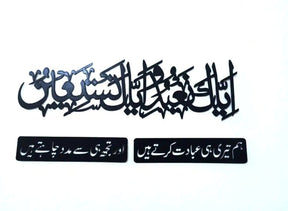 اياك نعبد واياك نستعين
ہم تیری ہی عبادت کرتے ہیں اور تجھ ہی سے مدد چاہتے ہیں